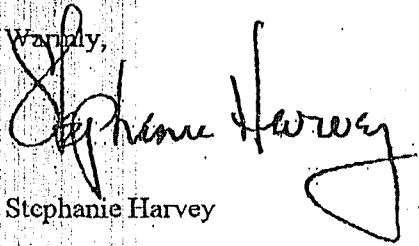 Warmly,
Stephanie Harvey
Stephanie Harvey